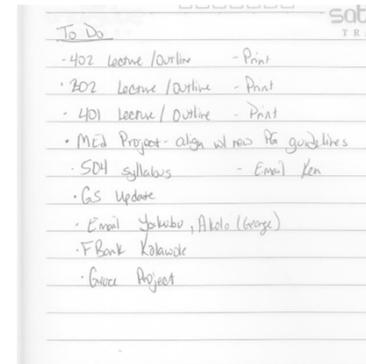 sab
TR
To Do
- 402 Lecture/Outline - Print
· 202 Lecture/Outline - Print
- 401 Lecture/Outline - Print
· MEd Project - align w/ new PG guidelines
· 504 syllabus - Email Ken
· GS Update
· Email Yakubu, Akolo (George)
· F Bank Kolawole
· Grace Project